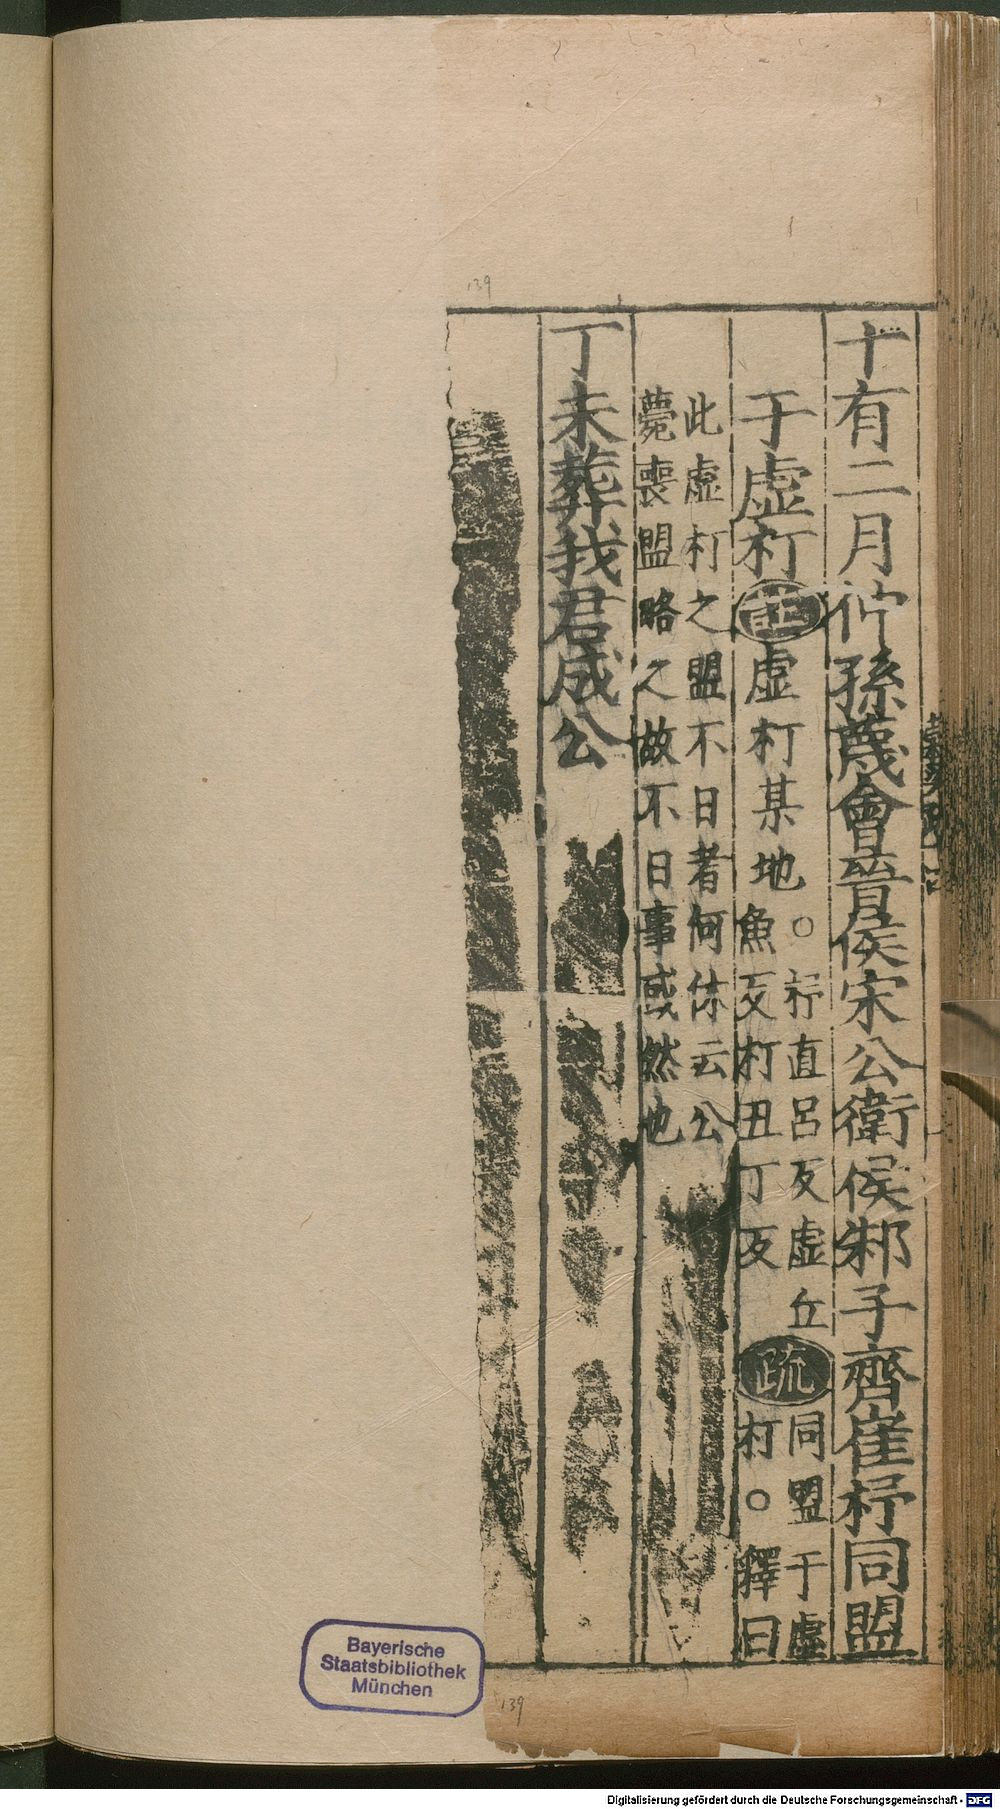 十有二月仲孫蔑會晉侯宋公衛侯邾子齊崔杼同盟
于虚朾
註
虚朾某地
○杼直呂反虚丘
魚反朾丑丁反
疏
同盟于虚
朾○釋曰
此虚朾之盟不日者何休云公
薨喪盟略之故不日事或然也
丁未葬我君成公
139
139
Bayerische
Staatsbibliothek
München
Digitalisierung gefördert durch die Deutsche Forschungsgemeinschaft - DFG